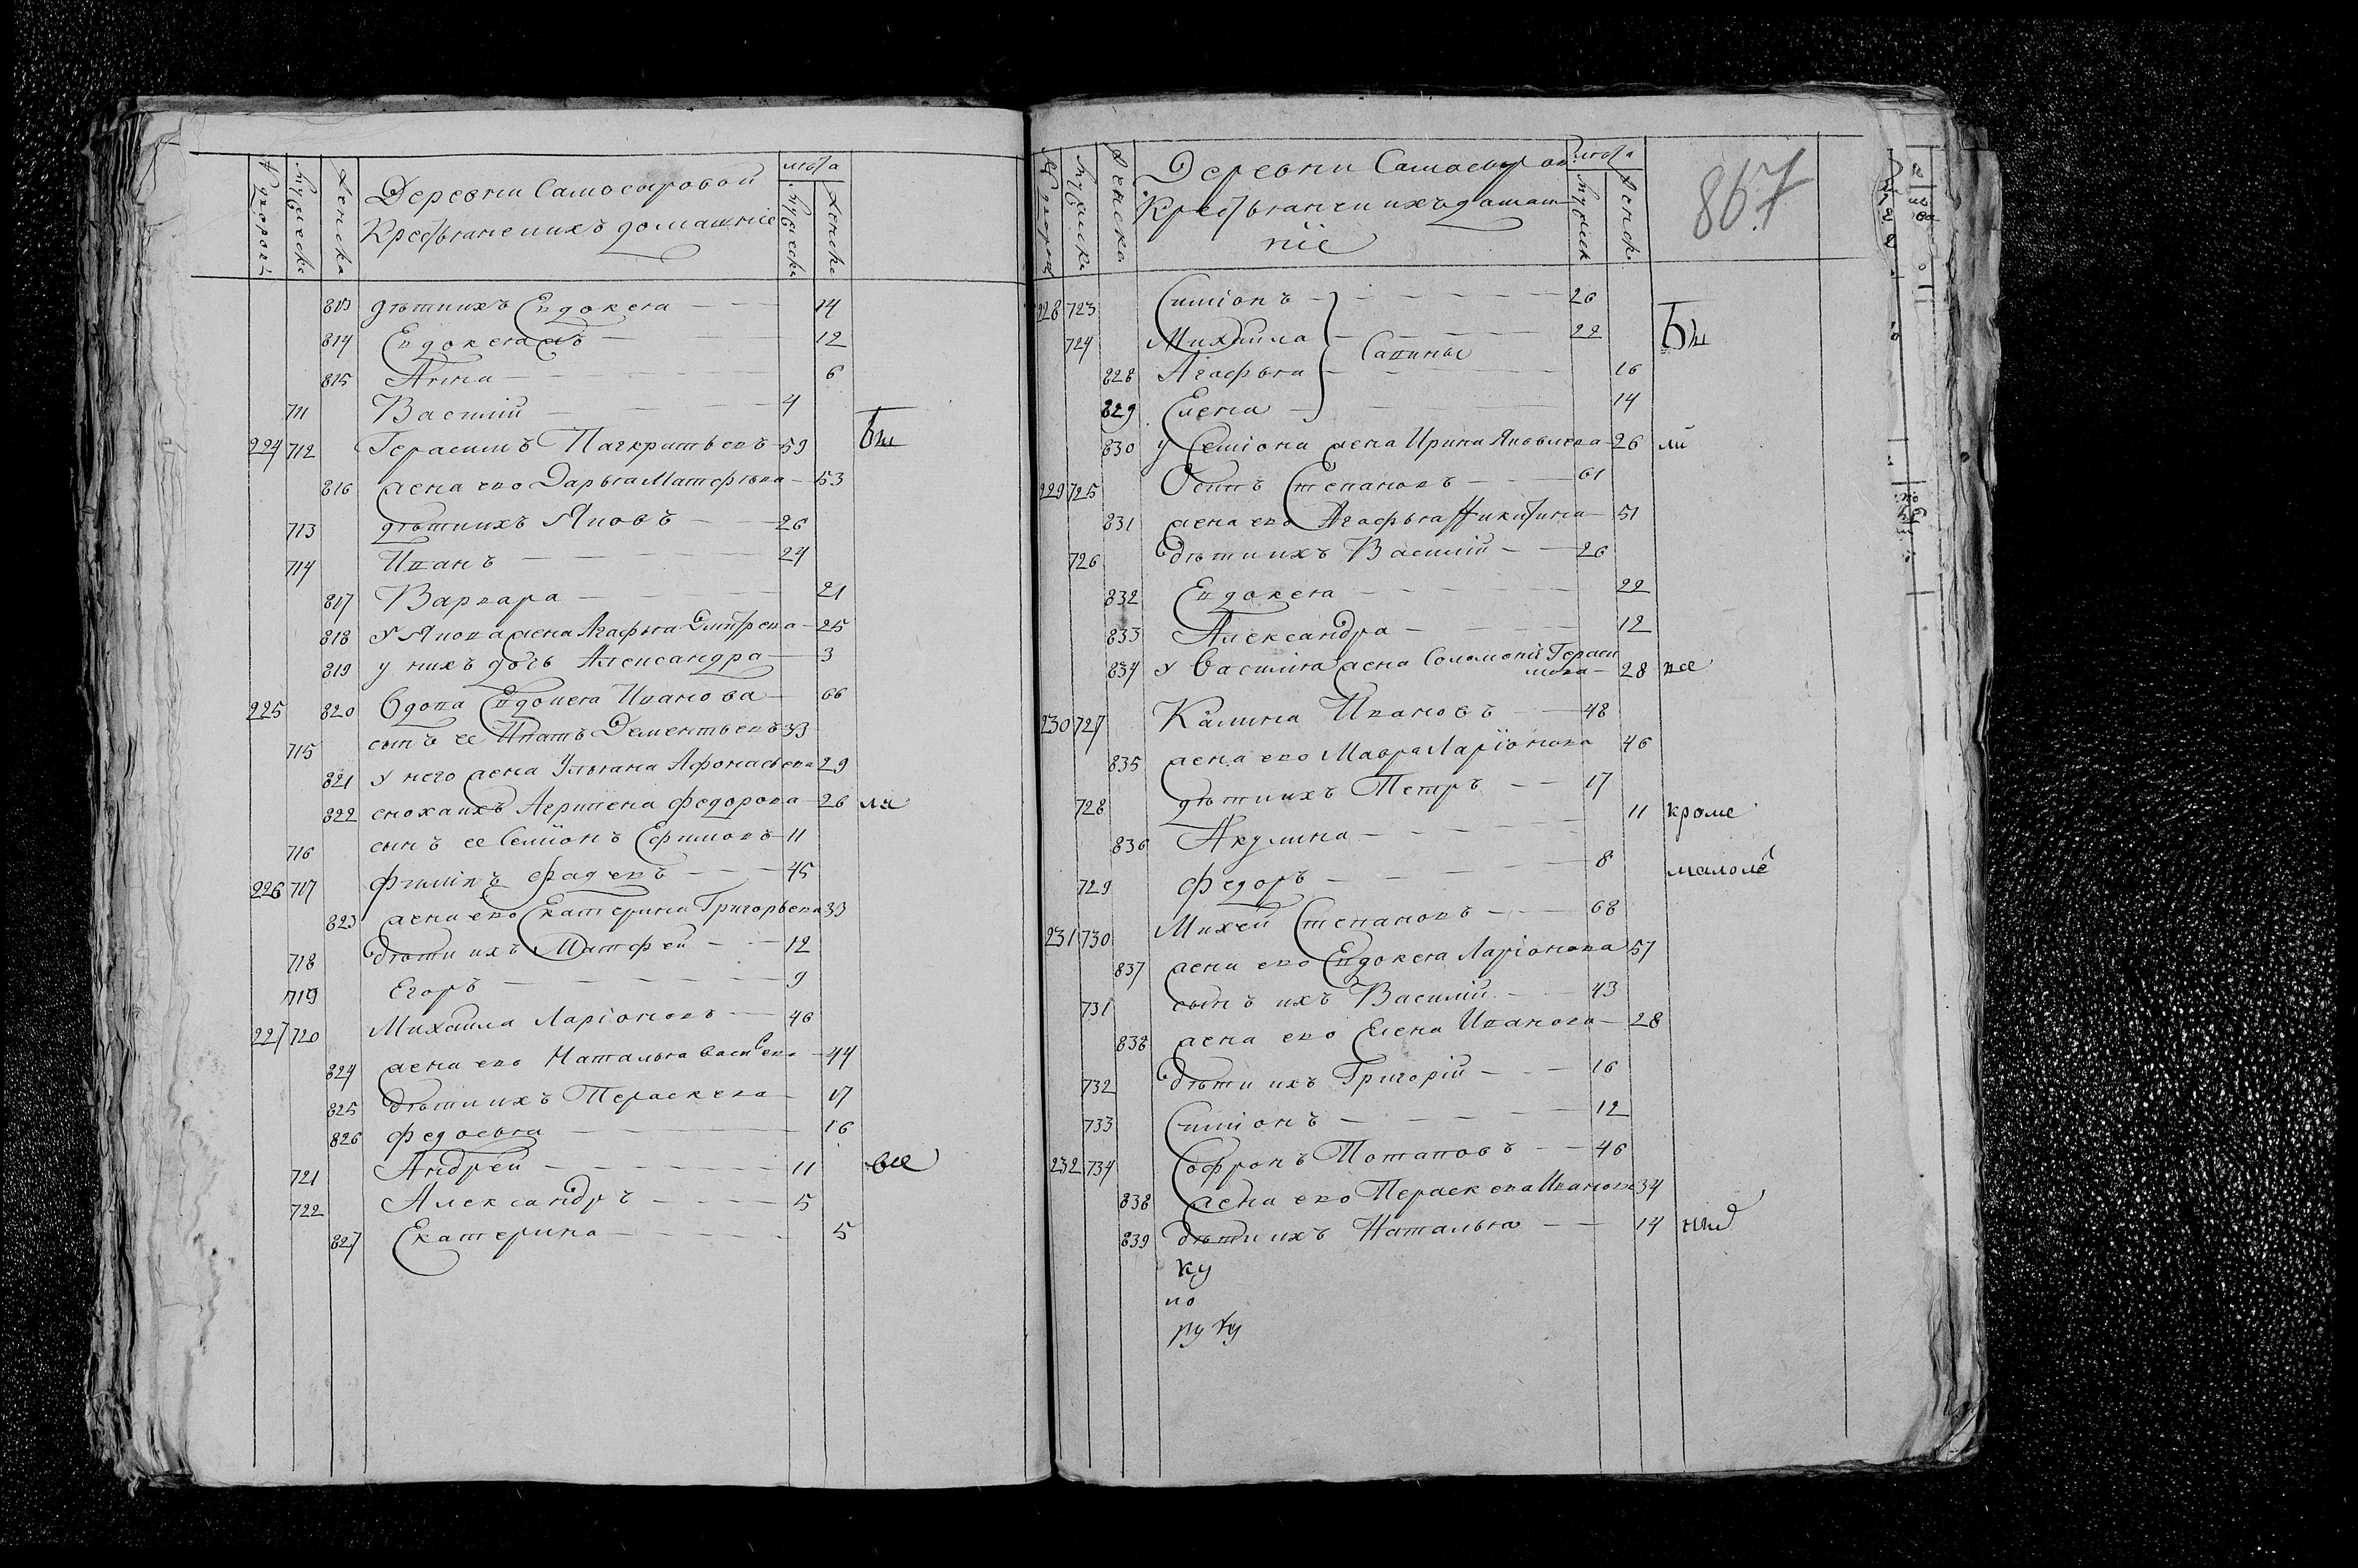 дворовъ
мужеска
женска
Деревни Самосыровой
Крестьяне и ихъ домашніе
лѣта
мужеска
женска
813 дѣти ихъ Евдокея 14
814 Евдокея 12
815 Анна 6
711 Василій 4
224 712 Герасимъ Панкратьевъ 59 Бы
816 жена ево Дарья Матфѣева 53
713 дѣти ихъ Яковъ 26
714 Иванъ 24
817 Варвара 21
818 У Якова жена Агафья Дмитрева 25
819 у нихъ дочь Александра 3
225 820 Вдова Евдокея Иванова 66
715 сынъ ее Игнатъ Дементьевъ 33
821 У него жена Ульяна Афонасьева 29
822 сноха ихъ Агрипена Федорова 26 ли
716 сынъ ее Семіонъ Ефимовъ 11
226 717 Филипъ Фадевъ 45
823 жена ево Екатерина Григорьева 33
718 дѣти ихъ Матфей 12
719 Егоръ 9
227 720 Михаила Ларіоновъ 46
824 жена ево Наталья Васильева 44
825 дѣти ихъ Пераскева 17
826 Федосья 16
721 Андрей 11 все
722 Александръ 5
827 Екатерина 5
дворовъ
мужеска
женска
Деревни Самосыров
Крестьяне и ихъ домаш
ніе
лѣта
мужеска
женска
867
228 723 Симіонъ 26
724 Михайла 22 Бы
Савины
828 Агафья 16
829 Елена 14
830 у Семіона жена Ирина Яковлева 26 ли
229 725 Осипъ Степановъ 61
831 жена ево Агафья Никитина 51
726 дѣти ихъ Василій 26
832 Евдокея 22
833 Александра 12
834 У Василія жена Соломонія Гераси
мова 28 все
230 727 Калина Ивановъ 48
835 жена ево Мавра Ларіонова 46
728 дѣти ихъ Петръ 17
836 Акулина 11 кроме
729 Федоръ 8 малолѣ
231 730 Михей Степановъ 68
837 жена ево Евдокея Ларіонова 57
731 сынъ ихъ Василій 43
838 жена ево Елена Иванова 28
732 дѣти ихъ Григорій 16
733 Симіонъ 12
232 734 Софронъ Потаповъ 46
838 жена ево Пераскева Иванова 34
839 дѣти ихъ Наталья 14
ку
по
руку